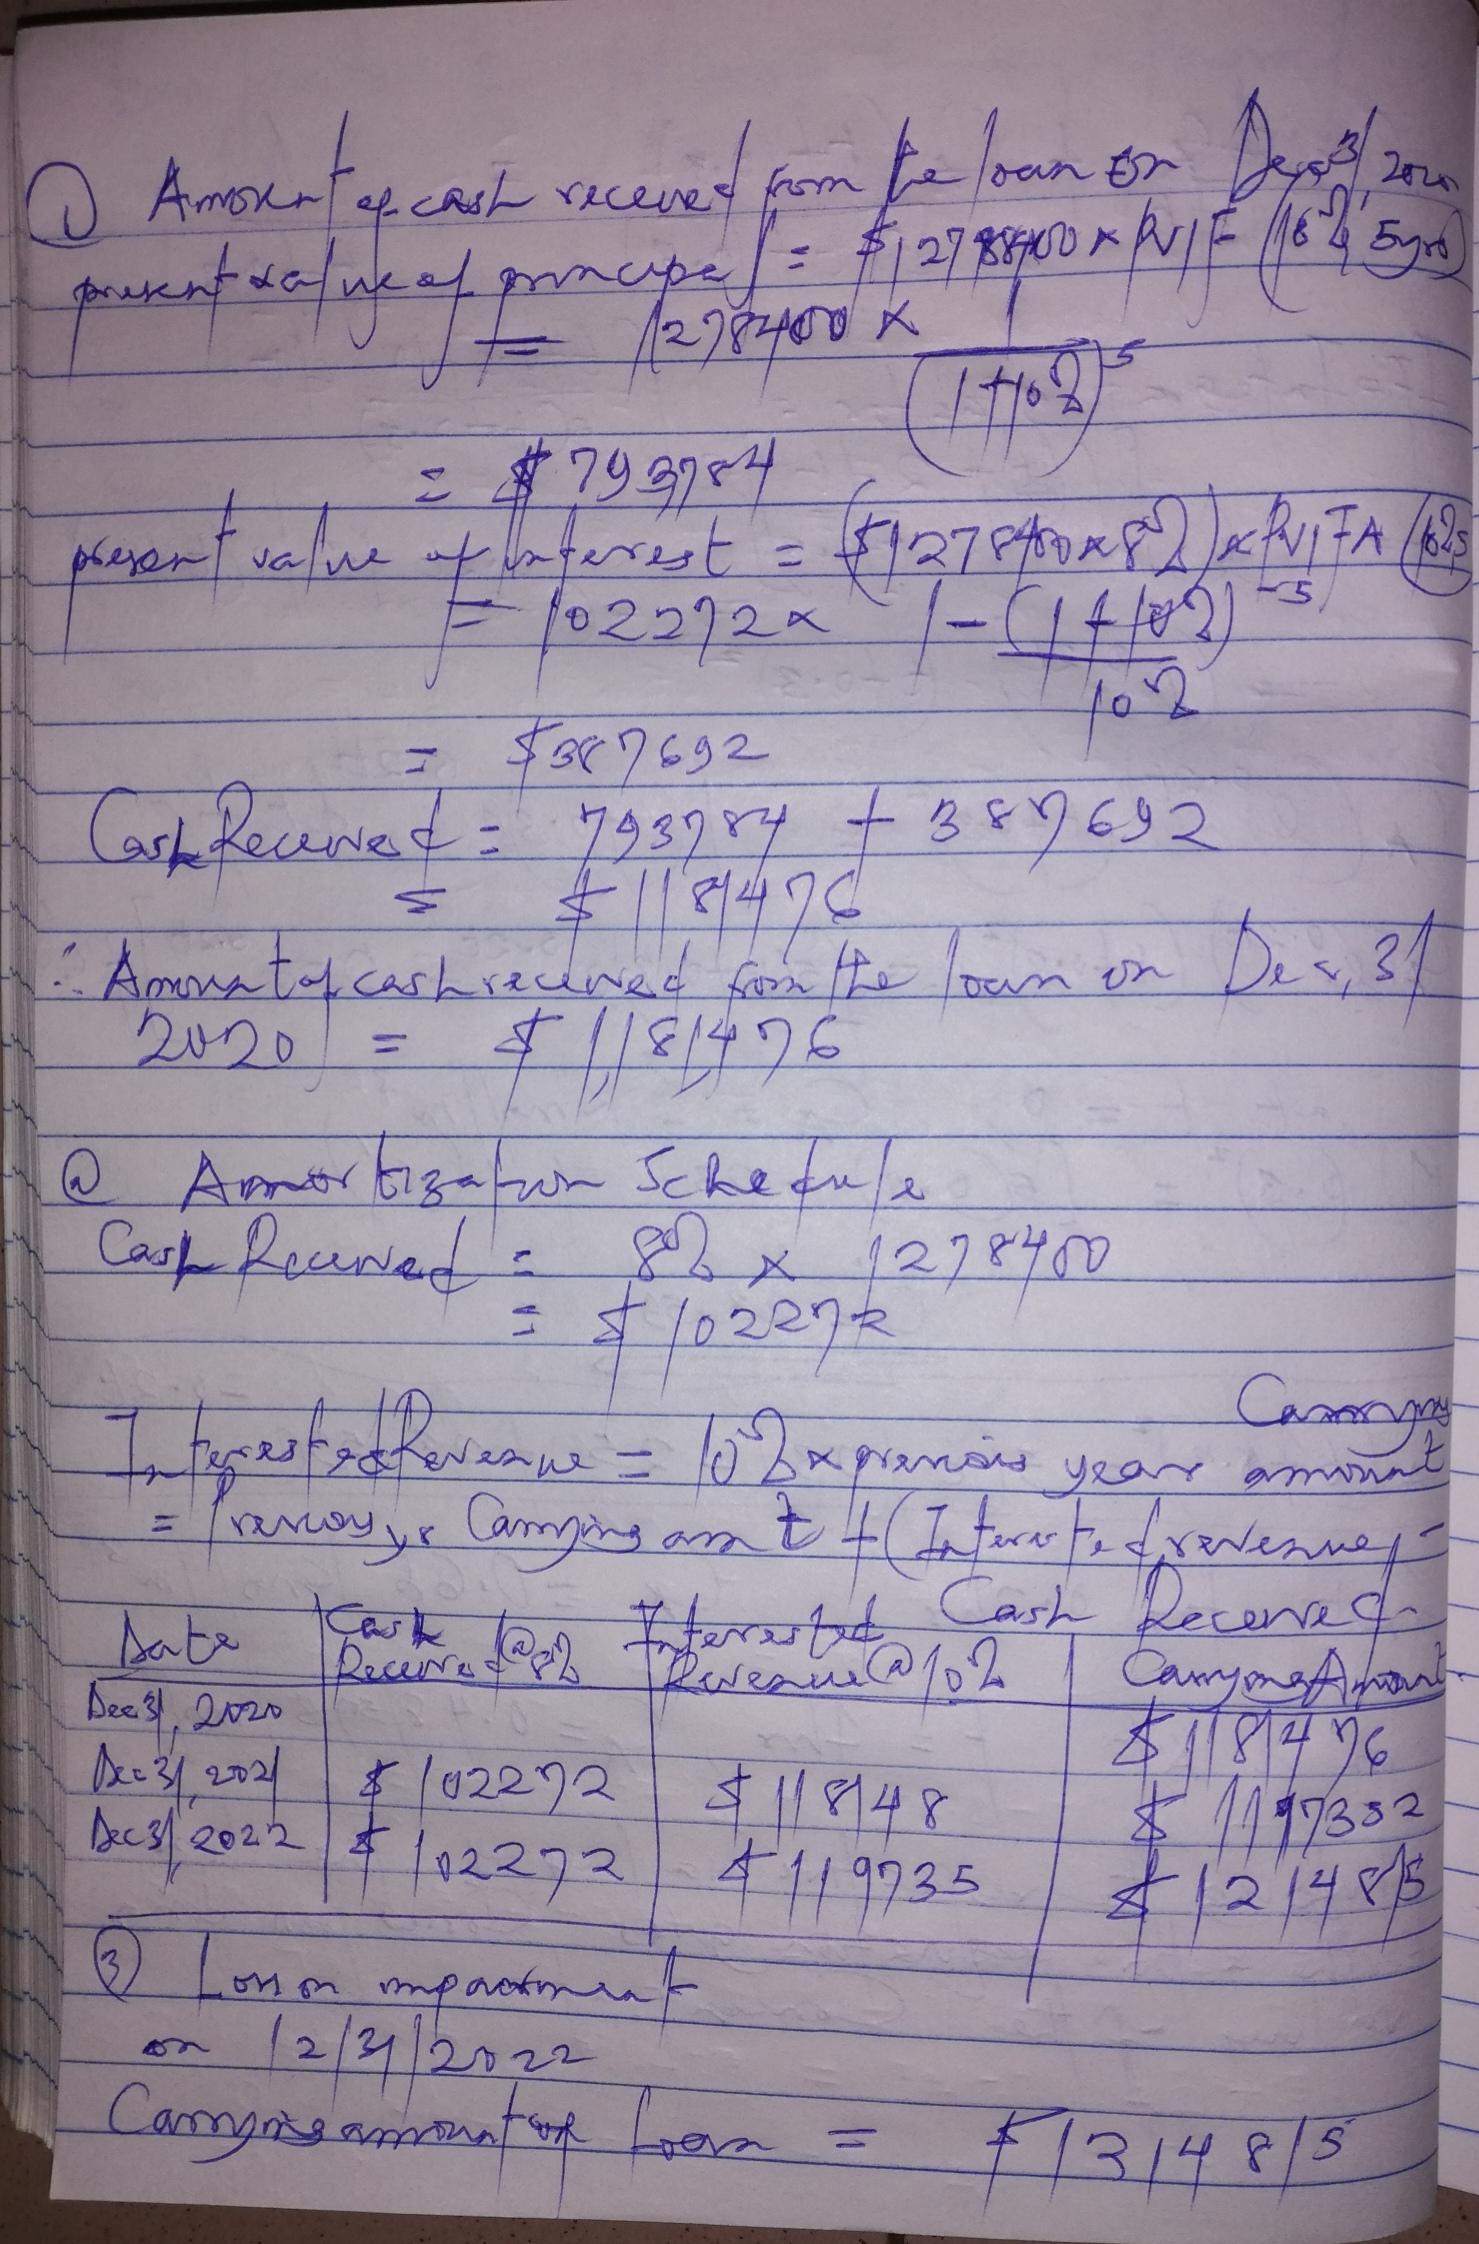 ① Amount of cash received from the loan on Dec 31, 2020
present value of principal = $1278400 x PVIF (10%, 5yrs)
= 1278400 x 1
(1+10%)^5
= $793784
present value of interest = ($1278400x8%) x PVIFA (10%5
= 102272 x 1-(1+10%)^-5
10%
= $387692
Cash Received = 793784 + 387692
= $1181476
∴ Amount of cash received from the loan on Dec, 31
2020 = $1,181,476
② Amortization Schedule
Cash Received = 8% x 1278400
= $102272
Carrying
Interested Revenue = 10% x previous year amount
= Previous yr Carrying amt + (Interested revenue -
Cash Received
Date | Cash Received @8% | Interested Revenue @10% | Carrying Amount
Dec 31, 2020 $1181476
Dec 31, 2021 $102272 $118148 $1197352
Dec 31, 2022 $102272 $119735 $1214815
③ Loss on impairment
on 12/31/2022
Carrying amount of Loan = $1314815